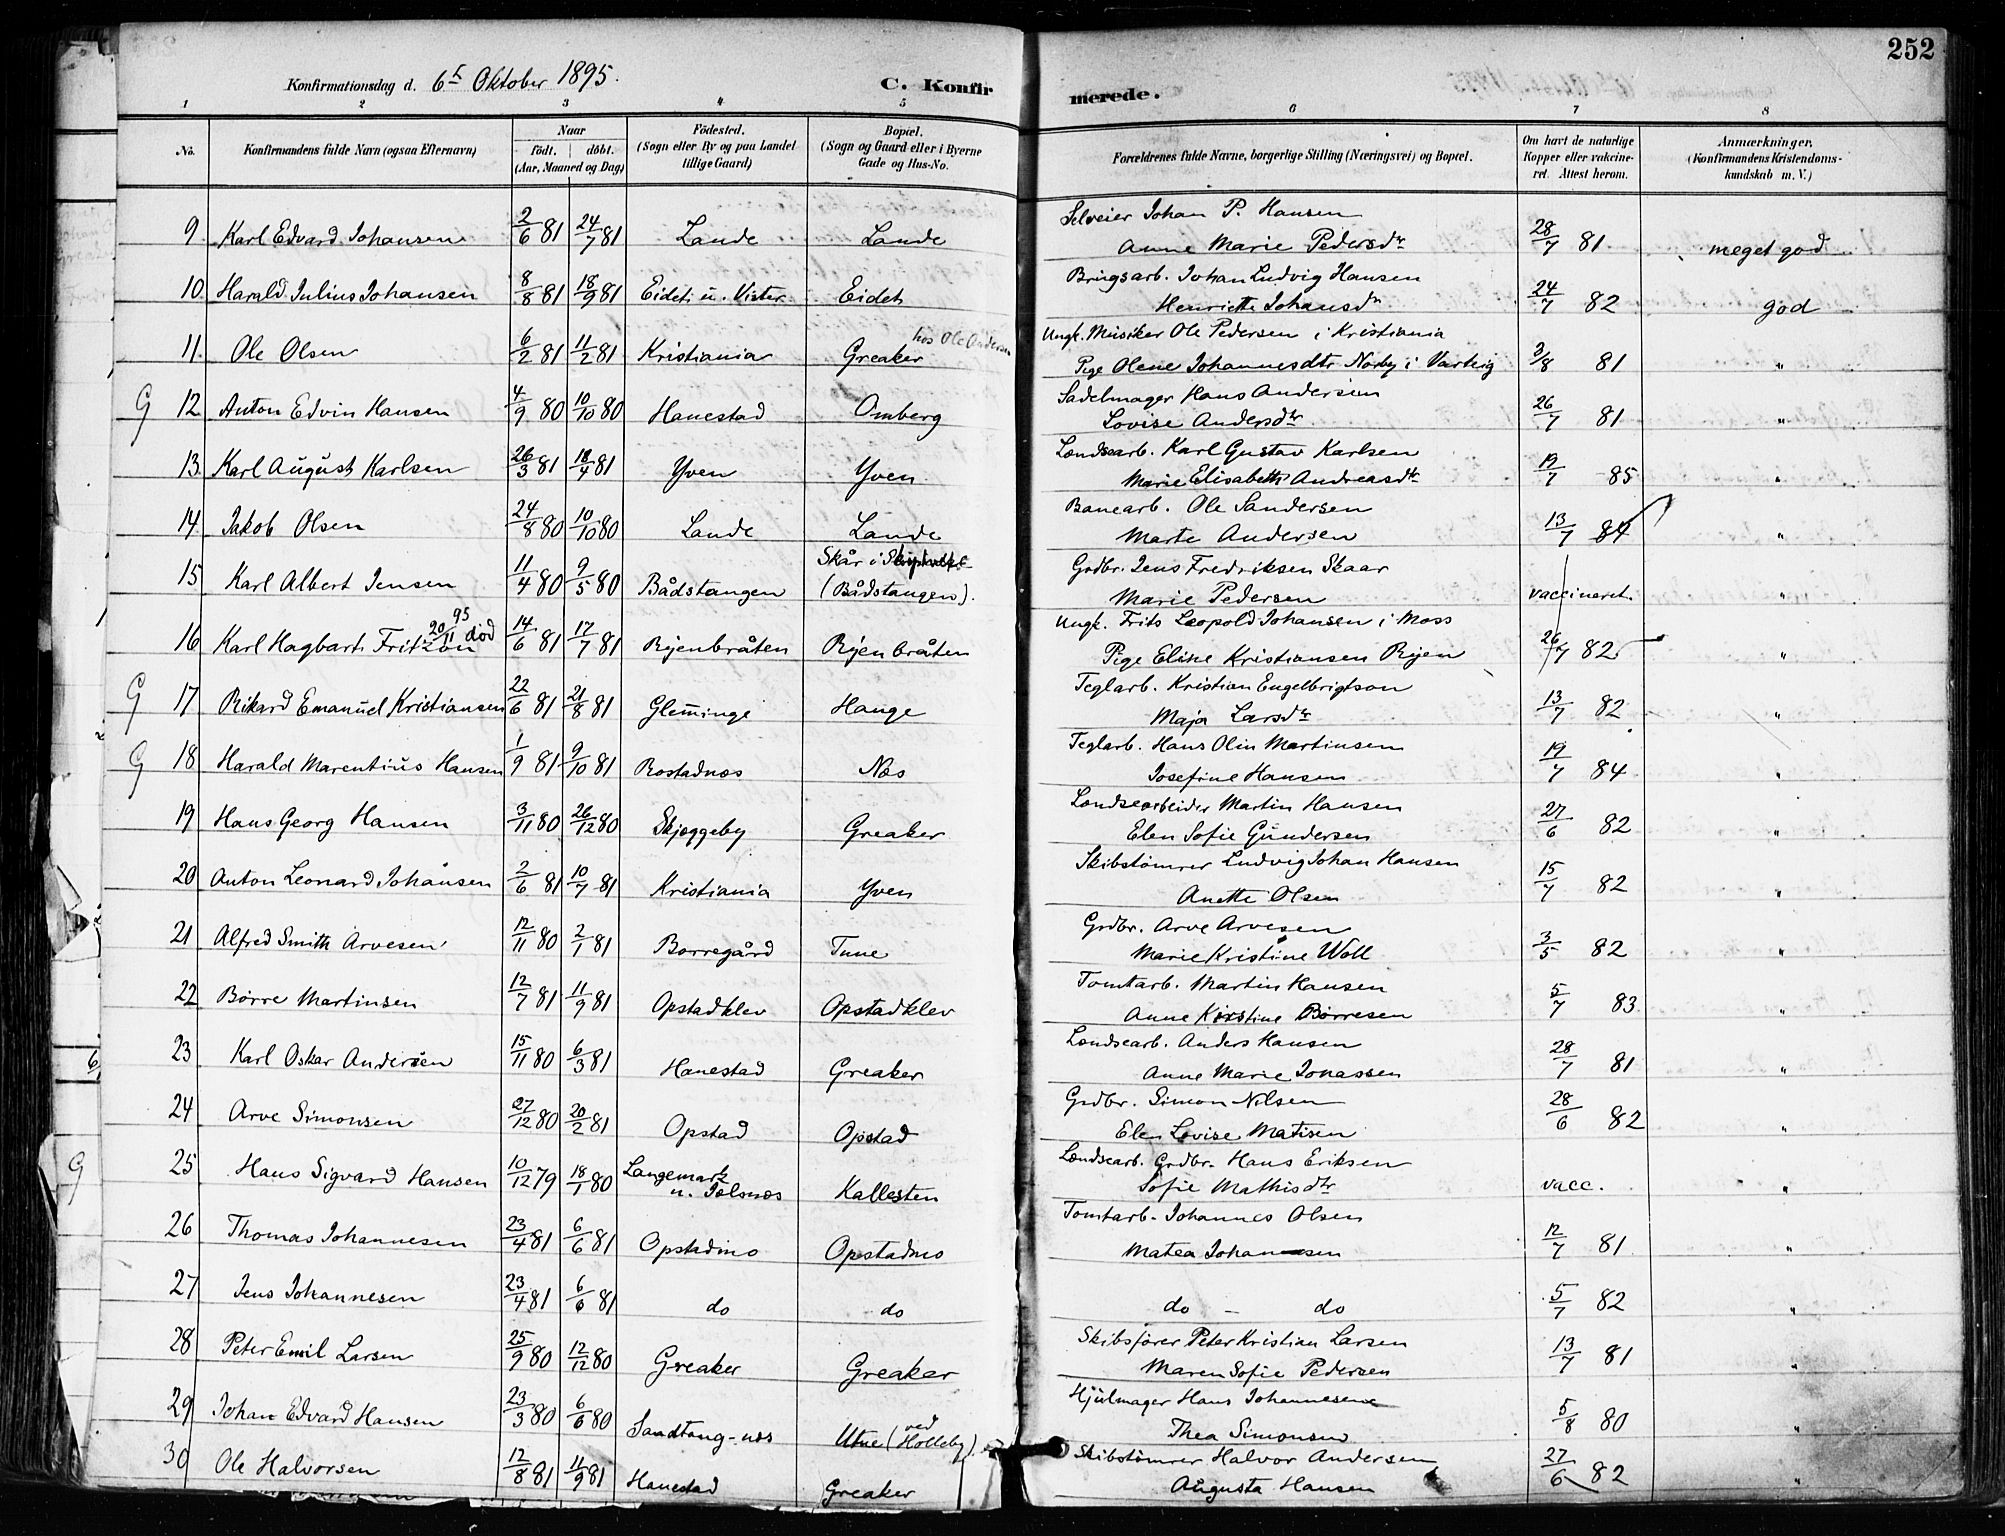 252
Konfirmationsdag d. 6te Oktober 1895.
C. Konfirmerede.
1 2 3 4 5 6 7 8
No. Konfirmandens fulde Navn (ogsaa Efternavn) Naar født. døbt. (Aar, Maaned og Dag) Födested. (Sogn eller By og paa Landet tillige Gaard) Bopæl. (Sogn og Gaard eller i Byerne Gade og Hus-No. Forældrenes fulde Navne, borgerlige Stilling (Næringsvei) og Bopæl. Om havt de naturlige Kopper eller vakcineret. Attest herom. Anmærkninger. (Konfirmandens Kristendomskundskab m. V.)
9 Karl Edvard Johansen 2/6 81 24/7 81 Lande Lande Selveier Johan P. Hansen
Anne Marie Pedersdtr 28/7 81 meget god
10 Harald Julius Johansen 8/8 81 18/9 81 Eidet u. Vister Eidet Brugsarb. Johan Ludvig Hansen
Henriette Johansdtr 24/7 82 god
11. Ole Olsen 6/2 81 11/2 81 Kristiania Greaker hos Ole Andersen Ungk. Musiker Ole Pedersen i Kristiania
Pige Olene Johannesdtr Norby i Varteig 3/8 81 "
G 12 Anton Edvin Hansen 4/9 80 10/10 80 Hanestad Omberg Sadelmager Hans Andersen
Lovise Andersdtr 26/7 81 "
13. Karl August Karlsen 26/3 81 18/4 81 Yven Yven Landsearb. Karl Gustav Karlsen
Marie Elisabeth Andreasdtr 19/7 85 "
14. Jakob Olsen 24/8 80 10/10 80 Lande Lande Banearb. Ole Sandersen
Marte Andersen 13/7 84 "
15 Karl Albert Jensen 11/4 80 9/5 80 Bådstangen Skår i Skiptvedt (Bådstangen). Grdbr. Jens Fredriksen Skaar
Marie Pedersen vaccineret. "
16 Karl Hagbart Fritzon 20/11 95 död 14/6 81 17/7 81 Ryenbråten Ryenbråten Ungk. Frits Leopold Johansen i Moss
Pige Eline Kristiansen Ryen 26/7 82 "
G 17 Rikard Emanuel Kristiansen 22/6 81 21/8 81 Glemminge Hauge Teglarb. Kristian Engelbrigtson
Maja Larsdtr 13/7 82 "
G 18 Harald Marentius Hansen 1/9 81 9/10 81 Rostadnes Næs Teglarb. Hans Olin Martinsen
Josefine Hansen 19/7 84 "
19 Hans Georg Hansen 3/11 80 26/12 80 Skjeggeby Greaker Landsearbeider Martin Hansen
Elen Sofie Gundersen 27/6 82 "
20 Anton Leonard Johansen 2/6 81 10/7 81 Kristiania Yven Skibstömrer Ludvig Johan Hansen
Anette Olsen 15/7 82 "
21 Alfred Smith Arvesen 12/11 80 2/1 81 Borregård Tune Grdbr. Arve Arvesen
Marie Kristine Woll 3/5 82 "
22 Børre Martinsen 12/7 81 11/9 81 Opstadklev Opstadklev Tomtarb. Martin Hansen
Anne Kirstine Börresen 5/7 83 "
23 Karl Oskar Andersen 15/11 80 6/3 81 Hanestad Greaker Landsearb. Anders Hansen
Anne Marie Jonassen 28/7 81 "
24 Arve Simonsen 27/12 80 20/2 81 Opstad Opstad Grdbr. Simon Nilsen
Elen Lovise Matisen 28/6 82 "
G 25 Hans Sigvard Hansen 10/12 79 18/1 80 Langemark u. Jelsnæs Kallesten Landsearb. Grdbr. Hans Eriksen
Sofie Mathisdtr vacc. "
26 Thomas Johannesen 23/4 81 6/6 81 Opstadmo Opstadmo Tomtarb. Johannes Olsen
Matea Johannesen 12/7 81 "
27 Jens Johannesen 23/4 81 6/6 81 do do do - do 5/7 82 "
28 Peter Emil Larsen 25/9 80 12/12 80 Greaker Greaker Skibsfører Peter Kristian Larsen
Maren Sofie Pedersen 13/7 81 "
29 Johan Edvard Hansen 23/3 80 6/6 80 Sandtang-nes Utne (ved Holleby) Hjulmager Hans Johannesen
Thea Simonsen 5/8 80 "
30 Ole Halvorsen 12/8 81 11/9 81 Hanestad Greaker Skibstömrer Halvor Andersen
Augusta Hansen 27/6 82 "